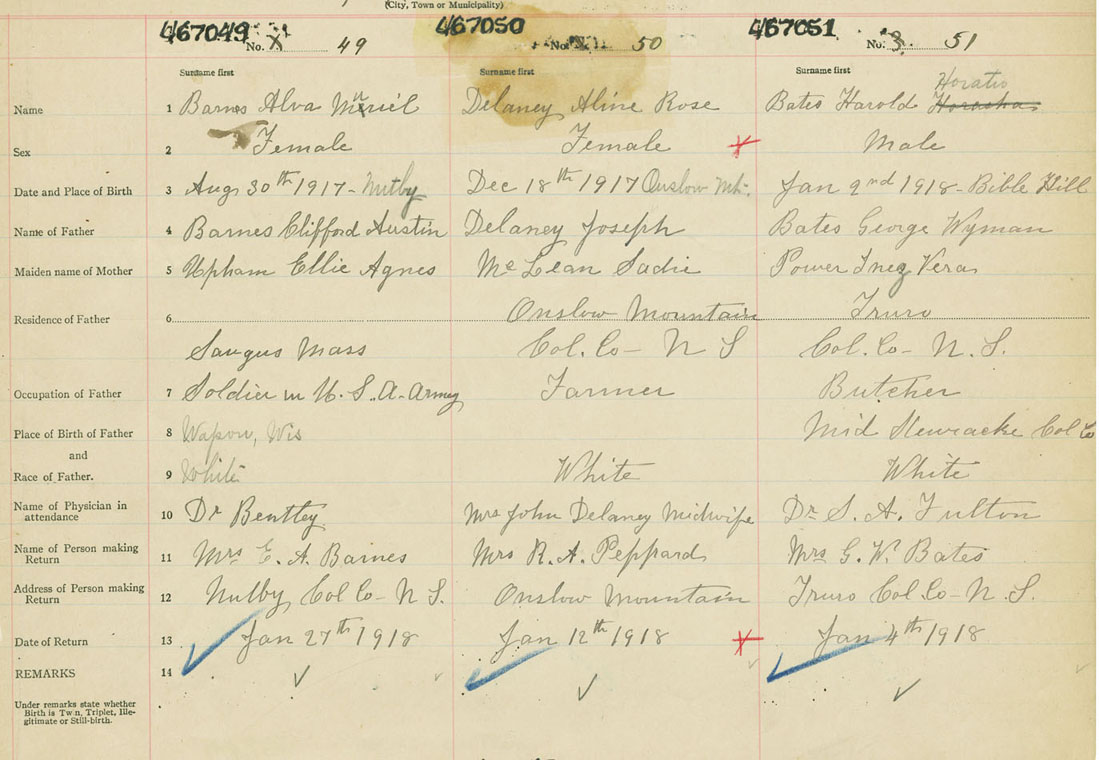 (City, Town or Municipality)
467049 467050 467051
No. 49 No. 50 No. 3. 51
Surname first Surname first Surname first
Horatio
Name 1 Barnes Alva Muriel Delaney Aline Rose Bates Harold
Sex 2 Female Female Male
Date and Place of Birth 3 Aug 30th 1917 - Nutby Dec 18th 1917 Onslow Mt. Jan 2nd 1918 - Bible Hill
Name of Father 4 Barnes Clifford Austin Delaney Joseph Bates George Wyman
Maiden name of Mother 5 Upham Ellie Agnes McLean Sadie Power Inez Vera
Residence of Father 6 Onslow Mountain Truro
Saugus Mass Col. Co - N S Col. Co - N. S.
Occupation of Father 7 Soldier in U. S. A. Army Farmer Butcher
Place of Birth of Father 8 Wis Mid Col Co
and
Race of Father. 9 White White White
Name of Physician in
attendance 10 Dr Bentley Mrs John Delaney Midwife Dr S. A. Fulton
Name of Person making
Return 11 Mrs E. A. Barnes Mrs R. A. Peppard Mrs G. W. Bates
Address of Person making
Return 12 Nutby Col Co - N S. Onslow Mountain Truro Col Co - N. S.
Date of Return 13 Jan 27th 1918 Jan 12th 1918 Jan 4th 1918
REMARKS 14
Under remarks state whether
Birth is Twin, Triplet, Ille-
gitimate or Still-birth.